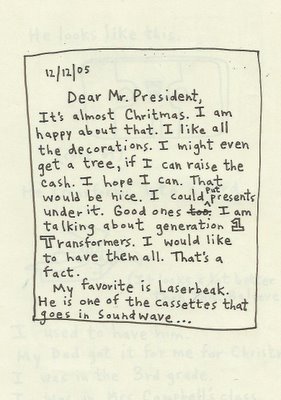 He looks like this.
12/12/05
Dear Mr. President,
It's almost Chritmas. I am
happy about that. I like all
the decorations. I might even
get a tree, if I can raise the
cash. I hope I can. That
would be nice. I could put presents
under it. Good ones too, I am
talking about generation 1
Transformers. I would like
to have them all. That's a
fact.
My favorite is Laserbeak.
He is one of the cassettes that
goes in Soundwave...
I used to have him.
My Dad got it for me for Christm
I was in the 3rd grade.
I was in Mrs. Campbell's class